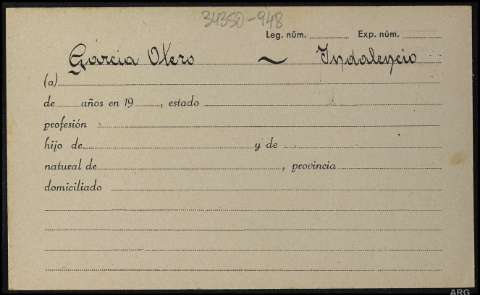 34350-948
Leg. núm. Exp. núm.
García Otero ~ Indalencio
(a)
de años en 19 , estado
profesión
hijo de y de
natural de , provincia
domiciliado
ARG